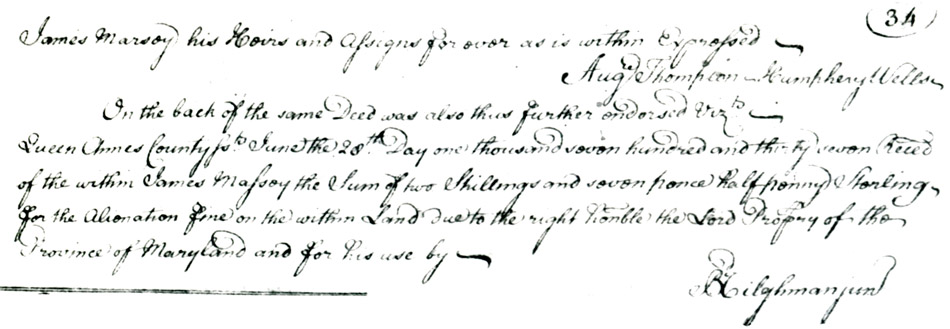 34
James Marsey his Heirs and Assigns for ever as is within Expressed
Augt Thompson Humphery Wells
On the back of the same Deed was also thus further endorsed Vizt.
Queen Annes County sst. June the 28th. Day one thousand seven hundred and thirty seven Reced
of the within James Massey the Sum of two Shillings and seven pence half penny Sterling
for the Alienation fine on the within Land due to the right Honble the Lord Propry of the
Province of Maryland and for his use by
RTilghman junr